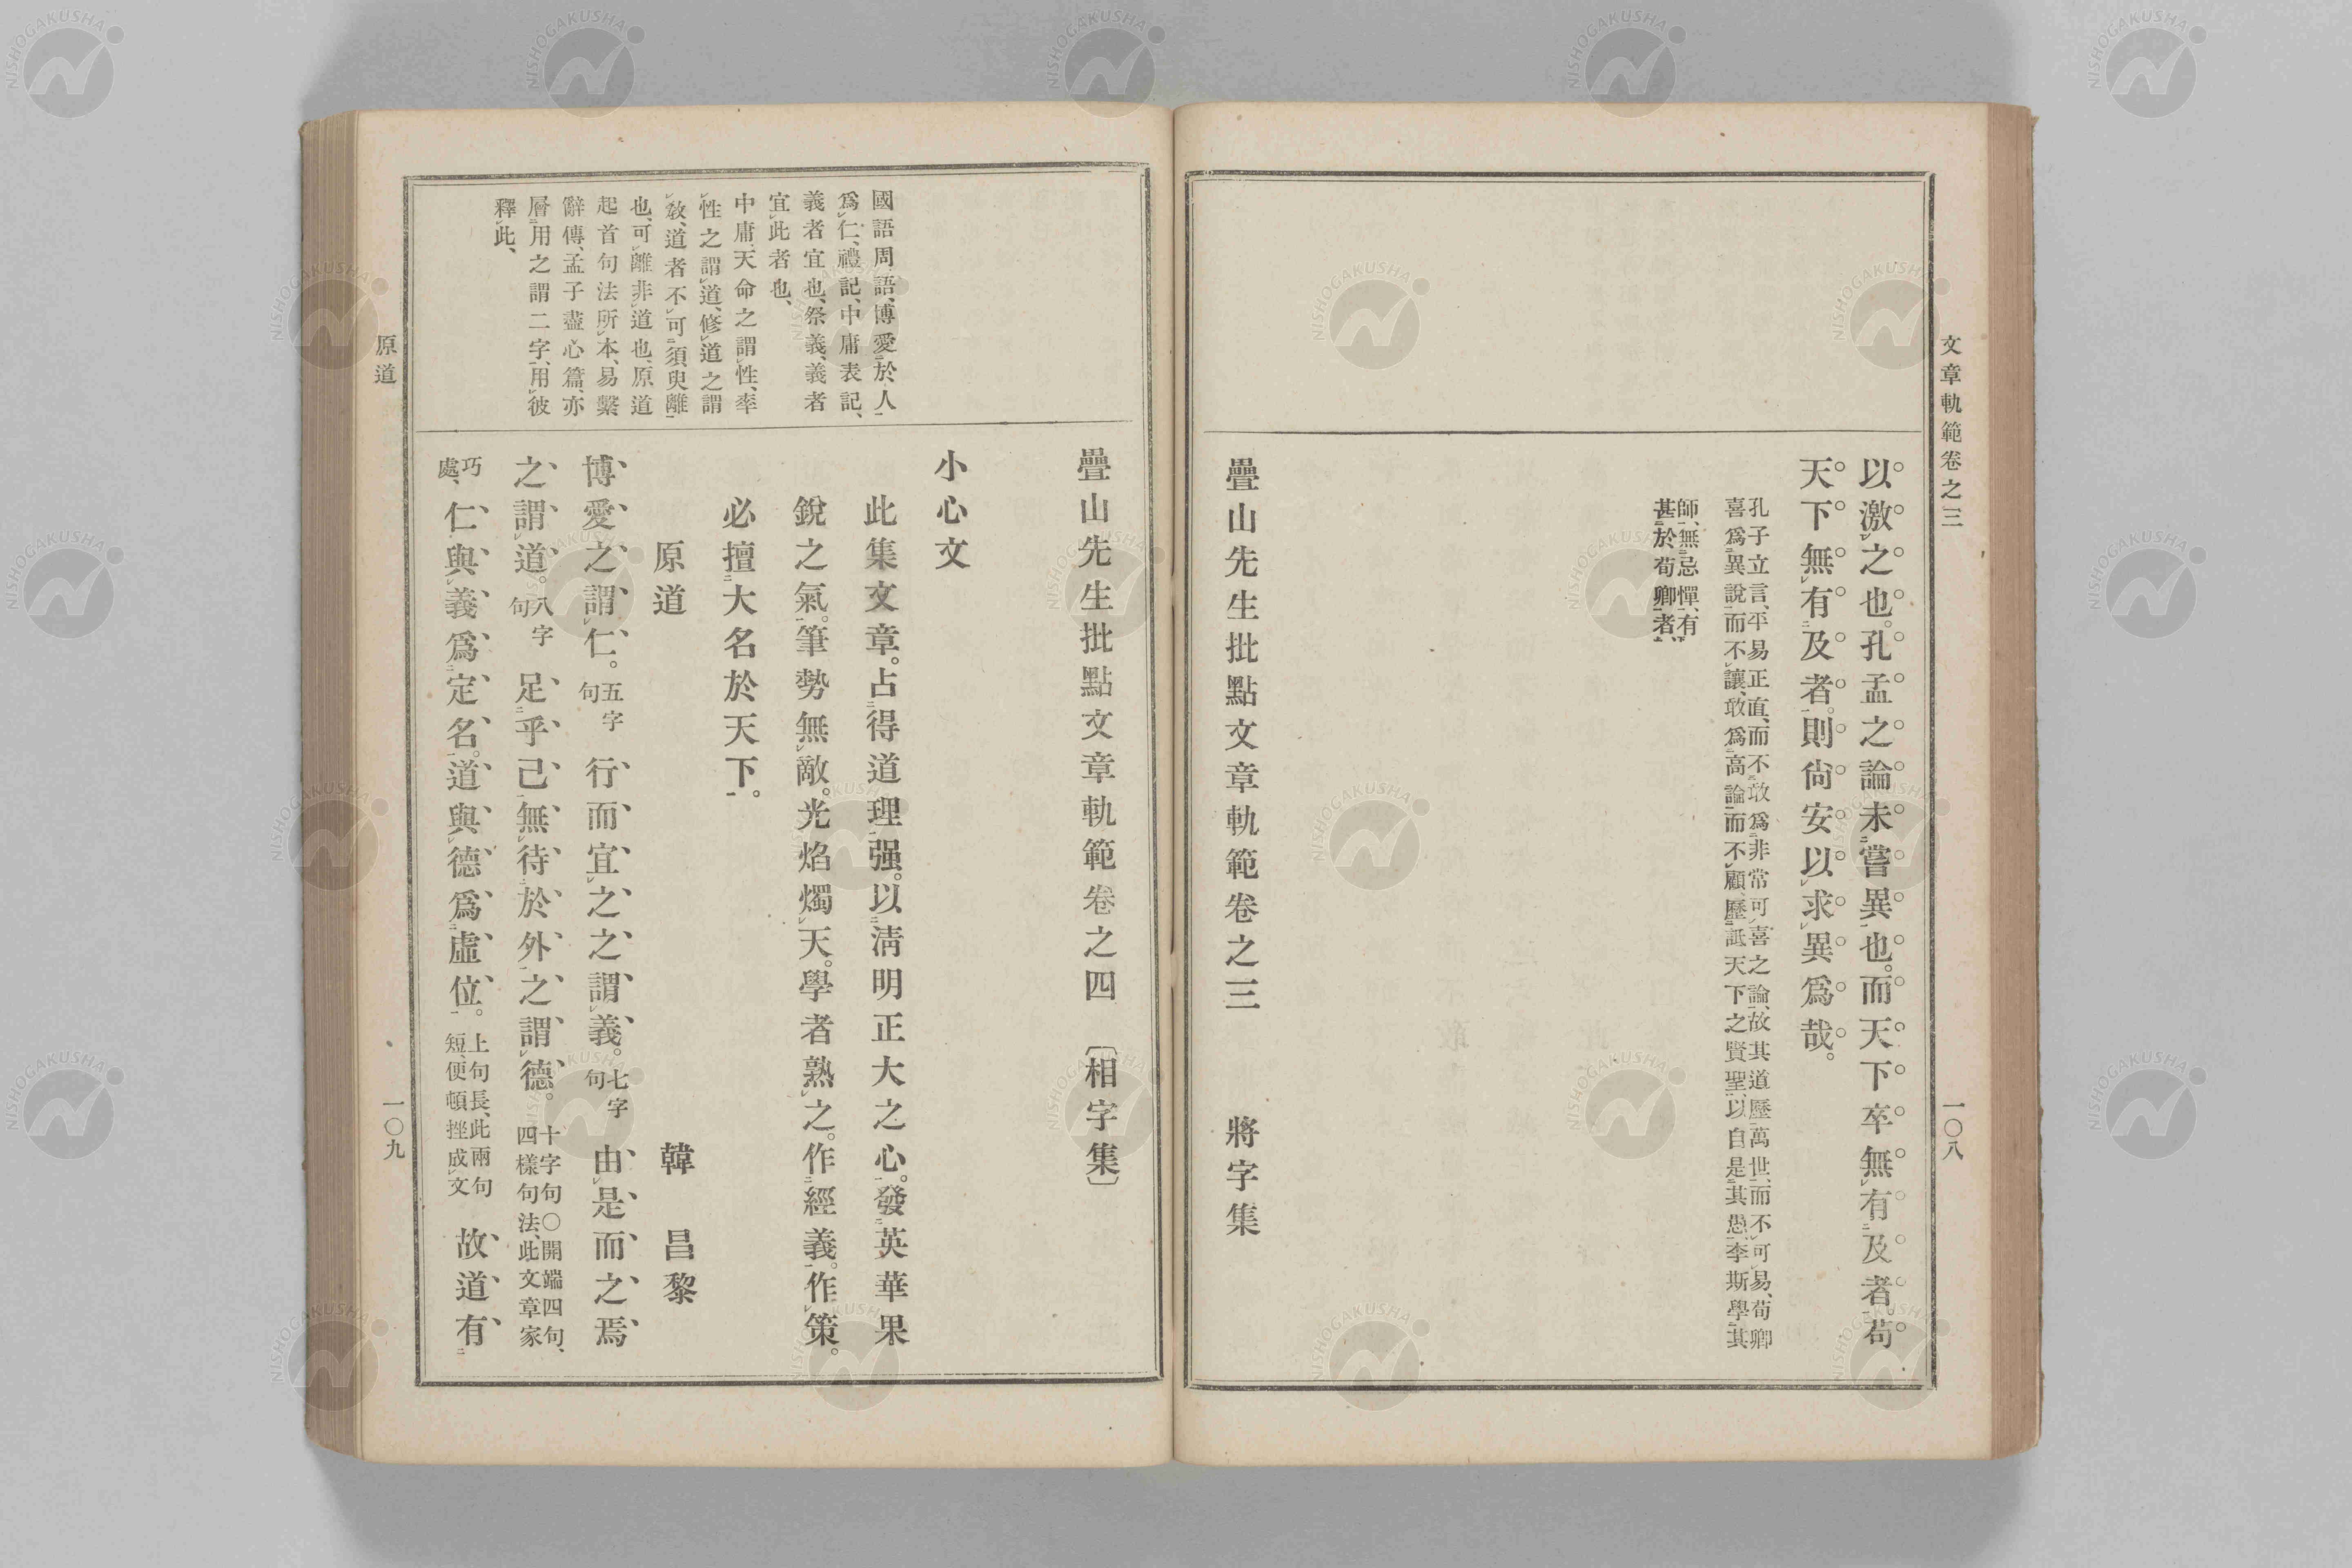 文章軌範卷之三
一〇八
以激之也。孔孟之論未嘗異也。而天下卒無有及者。苟
天下無有及者。則尙安以求異爲哉。
孔子立言、平易正直、而不敢爲非常可喜之論、故其道歷萬世、而不可易、荀卿
喜爲異說、而不讓、敢爲高論、而不顧、歷詆天下之賢聖、以自是其愚、李斯學其
師、無忌憚、有
甚於荀卿者、
疊山先生批點文章軌範卷之三 將字集
國語周語、博愛於人
爲仁、禮記、中庸表記、
義者宜也、祭義、義者
宜此者也、
中庸、天命之謂性、率
性之謂道、修道之謂
敎、道者不可須臾離
也、可離非道也、原道
起首句法所本、易繫
辭傳、孟子盡心篇、亦
層用之謂二字、用彼
釋此、
疊山先生批點文章軌範卷之四 〔相字集〕
小心文
此集文章。占得道理强。以淸明正大之心。發英華果
銳之氣。筆勢無敵。光焰燭天。學者熟之。作經義。作策。
必擅大名於天下。
原道 韓昌黎
博愛之謂仁。五字句 行而宜之之謂義。七字句 由是而之焉
之謂道。八字句 足乎己無待於外之謂德。十字句〇開端四句、四樣句法、此文章家
巧處、仁與義爲定名。道與德爲虛位。上句長、此兩句短、便頓挫成文 故道有
原道
一〇九
NISHOGAKUSHA